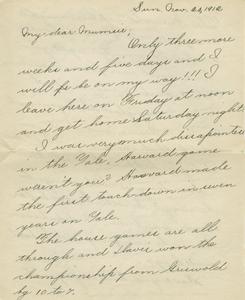 Sun. Nov. 23, 1912
My dear Mumsie,
Only three more
weeks and five days and I
will be on my way!!! I
leave here on Friday at noon
and get home Saturday night.
I was very much disappointed
in the Yale, Harvard game
weren't you? Harvard made
the first touch down in seven
years on Yale.
The house games are all
through and won the
championship from Griswold
by 10 to 7.